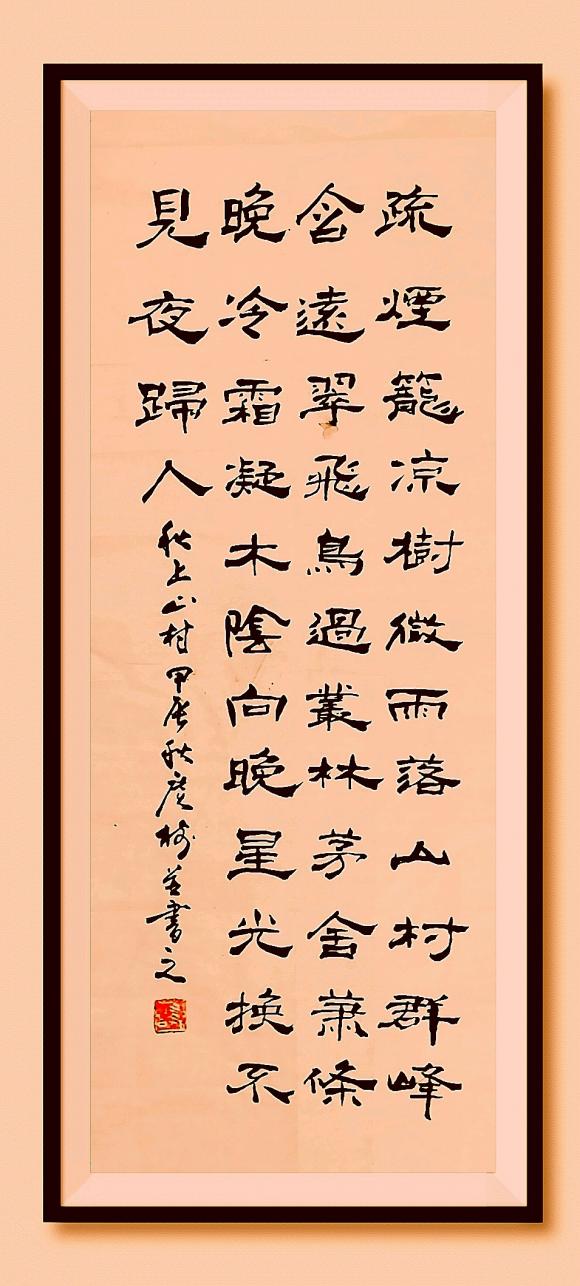 疏煙籠凉樹微雨落山村群峰
含遠翠飛鳥過叢林茅舍蕭條
晚冷霜凝木陰向晚星光換不
見夜歸人秋上山村甲辰秋并書之